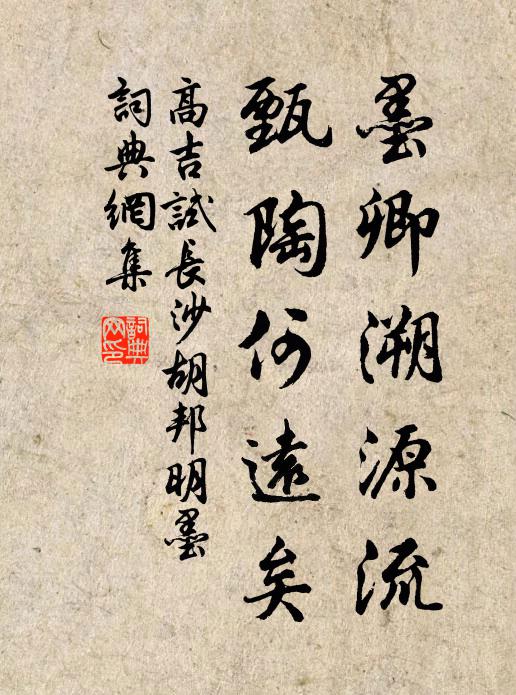 墨卿溯源流
甄陶何遠矣
高吉試長沙胡邦明墨
詞典網集
詞典
网印